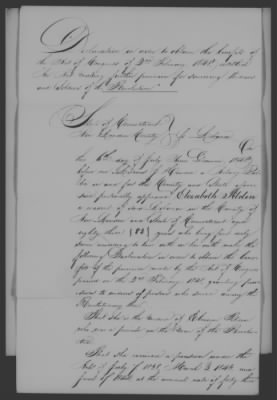 Declaration in order to obtain the benefit of
the Act of Congress of 2nd February 1848, entitled
An Act making further provision for surviving Widows
and Soldiers of the Revolution
State of Connecticut
New London County } ss. Ledyard
On
the 6th day of July Anno Domini, 1848,
before me a Notary Pub-
lic in and for the County and State afore-
said personally appeared Elizabeth Alden
a resident of in the County of
New London and State of Connecticut aged
eighty three (83) years who being first duly
sworn according to law doth on her oath make the
following Declaration in order to obtain the bene-
fit of the provision made by the Act of Congress
passed on the 2nd February 1848, granting pen-
sions to widows of persons who served during the
Revolutionary War.
That she is the widow of Alden
who was a in the War of the Revolu-
tion
That she received a pension under the
Act of July 7 1838, March 3, 1843,
of at the annual rate of forty